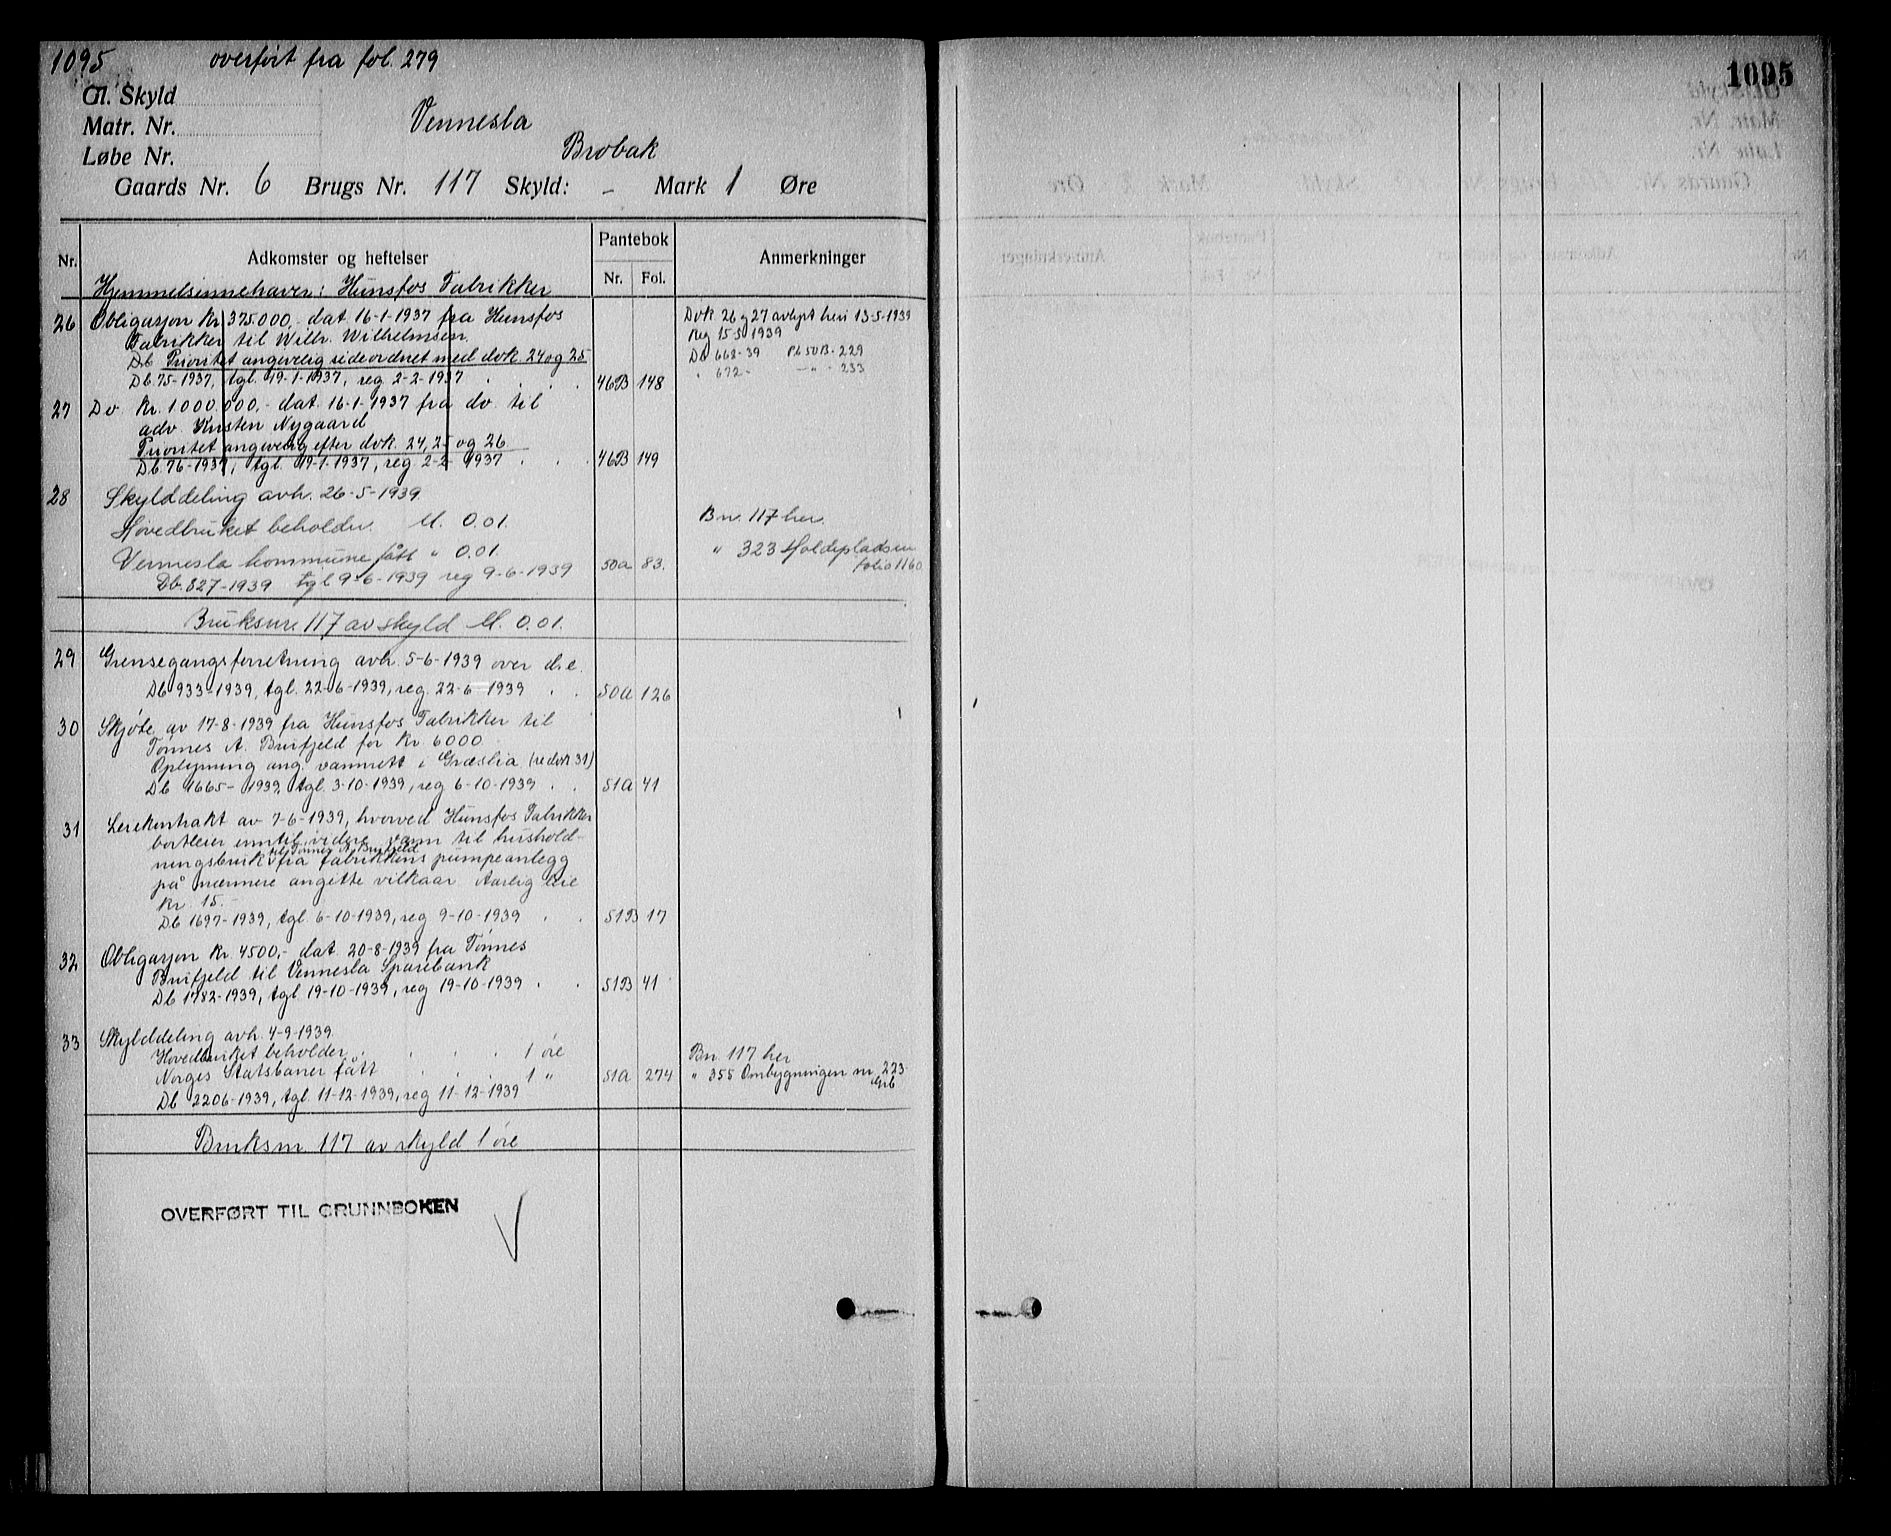 1095 overført fra fol. 279
1095
Gl. Skyld
Matr. Nr.
Vennesla
Løbe Nr.
Brobak
Gaards Nr. 6 Brugs Nr. 117 Skyld: - Mark 1 Øre
Nr. Adkomster og heftelser Pantebok Anmerkninger
Nr. Fol.
Hjemmelsinnehaver: Hunsfos Fabrikker
26 Obligasjon kr. 375.000,- dat. 16-1-1937 fra Hunsfos
Fabrikker til Wilh. Wilhelmsen
Prioritet angivelig sideordnet med dok. 24 og 25
Db 75-1937, tgl. 19-1-1937, reg. 2-2-1937 46B 148
Dok 26 og 27 avlyst heri 13-5-1939
Reg 15-5 1939
Db 668-39 Pb 50B-229
" 672- -"- 233
27 Do kr. 1 000 000,- dat. 16-1-1937 fra do. til
adv. Kristen Nygaard
Prioritet angivelig efter dok. 24, 25 og 26
Db 76-1937, tgl. 19-1-1937, reg 2-2 1937 46B 149
28 Skylddeling avh. 26-5-1939
Hovedbruket beholder M. 0.01. Bn. 117 her.
Vennesla kommune fått " 0.01 50a 83. " 323 Holdepladsen
folio 1160
Db. 827-1939 tgl 9-6-1939 reg 9-6-1939
Bruksnr 117 av skyld M. 0.01.
29 Grensegangsforretning avh. 5-6-1939 over d.e.
Db 933-1939, tgl. 22-6-1939, reg. 22-6-1939 50a 126
30 Skjøte av 17-8-1939 fra Hunsfos Fabrikker til
Tønnes A. Burfjeld for kr 6000
Oplysning ang. vannrett i Græslia (se dok 31)
Db 1665-1939, tgl. 3-10-1939, reg 6-10-1939 51a 41
31 Leiekontrakt av 7-6-1939, hvorved Hunsfos Fabrikker
bortleier inntil videre vann til hushold-
til Tønnes A. Burfjeld
ningsbruk fra fabrikkens pumpeanlegg
på nærmere angitte vilkaar Aarlig leie
kr. 15.-
Db 1697-1939, tgl. 6-10-1939, reg 9-10-1939 51B 17
32 Obligasjon kr 4500,- dat. 20-8-1939 fra Tønnes
Burfjeld til Vennesla Sparebank
Db 1782-1939, tgl 19-10-1939, reg 19-10-1939 51B 41
33 Skylddeling avh. 4-9-1939
Hovedbruket beholder 1 øre Bn. 117 her
Norges Statsbaner fått 1 " 51a 274 " 355 Ombygningen nr. 223
Grb
Db 2206-1939, tgl. 11-12-1939, reg 11-12-1939
Bruksnr 117 av skyld 1 øre
OVERFØRT TIL GRUNNBOKEN